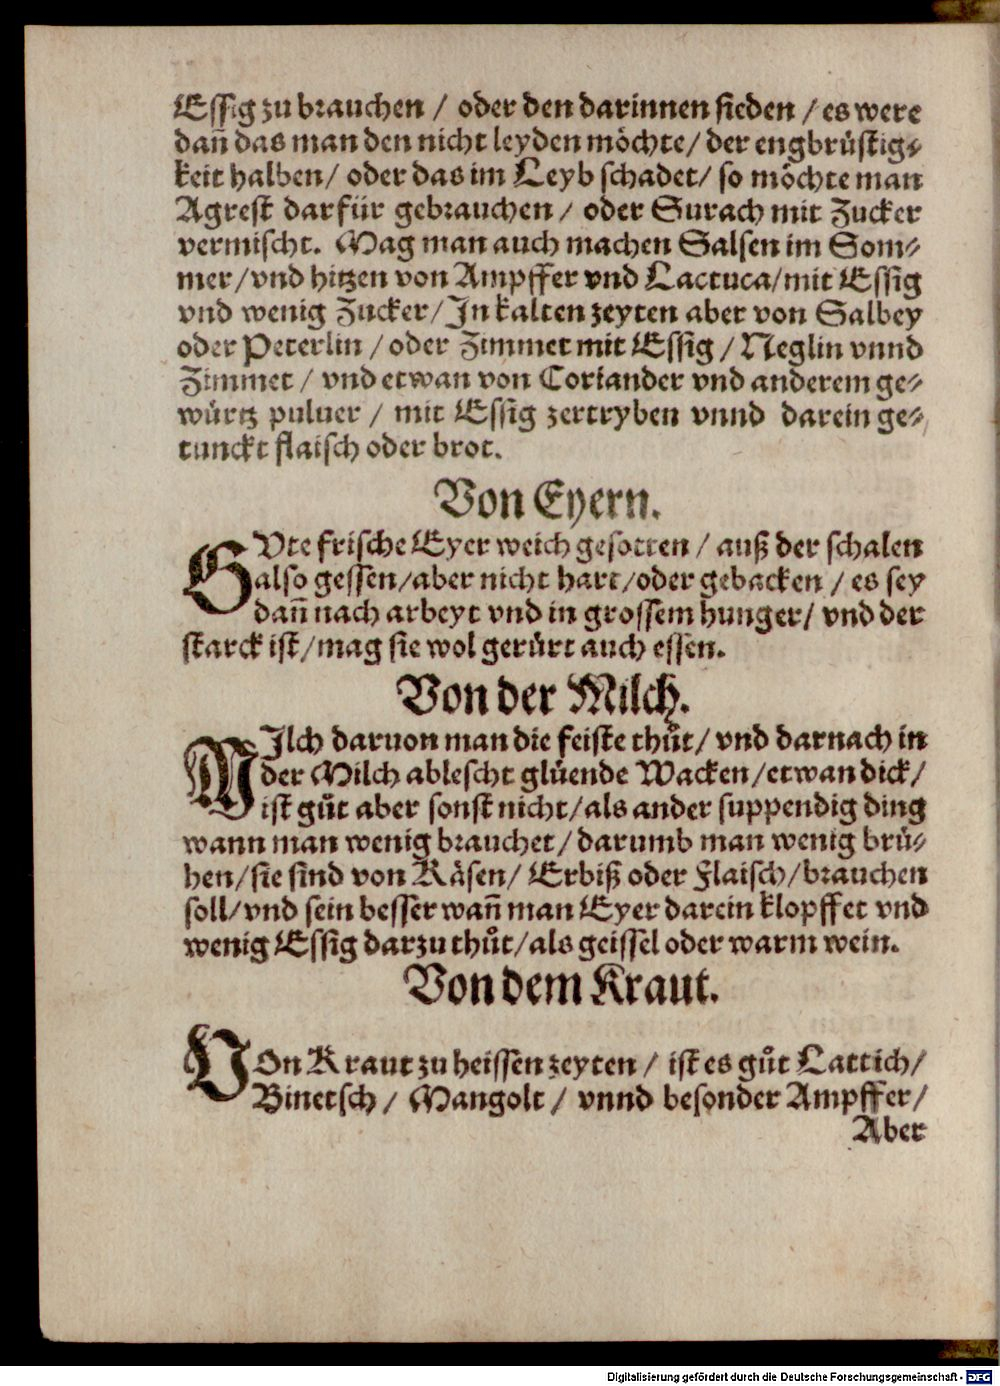 Essig zu brauchen / oder den darinnen sieden / es were
dañ das man den nicht leyden möchte / der engbrüstig⸗
keit halben / oder das im Leyb schadet / so möchte man
Agrest darfür gebrauchen / oder Surach mit Zucker
vermischt. Mag man auch machen Salsen im Som⸗
mer / vnd hitzen von Ampffer vnd Lactuca / mit Essig
vnd wenig Zucker / In kalten zeyten aber von Salbey
oder Peterlin / oder Zimmet mit Essig / Neglin vnnd
Zimmet / vnd etwan von Coriander vnd anderem ge⸗
würtz puluer / mit Essig zertryben vnnd darein ge⸗
tunckt flaisch oder brot.
Von Eyern.
GVte frische Eyer weich gesotten / auß der schalen
also gessen / aber nicht hart / oder gebacken / es sey
dañ nach arbeyt vnd in grossem hunger / vnd der
starck ist / mag sie wol gerürt auch essen.
Von der Milch.
MIlch daruon man die feiste thůt / vnd darnach in
der Milch ablescht glüende Wacken / etwan dick /
ist gůt aber sonst nicht / als ander suppendig ding
wann man wenig brauchet / darumb man wenig brü⸗
hen / sie sind von Käsen / Erbiß oder Flaisch / brauchen
soll / vnd sein besser wañ man Eyer darein klopffet vnd
wenig Essig darzu thůt / als geissel oder warm wein.
Von dem Kraut.
VOn Kraut zu heissen zeyten / ist es gůt Lattich /
Binetsch / Mangolt / vnnd besonder Ampffer /
Aber
Digitalisierung gefördert durch die Deutsche Forschungsgemeinschaft - DFG